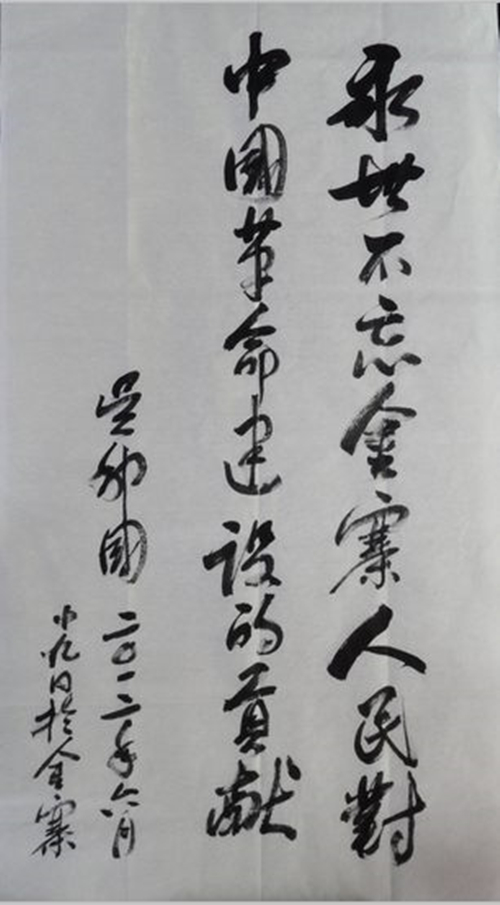 永世不忘金寨人民對
中國革命建设的貢献
吴邦國 二〇一三年六月
十九日於金寨